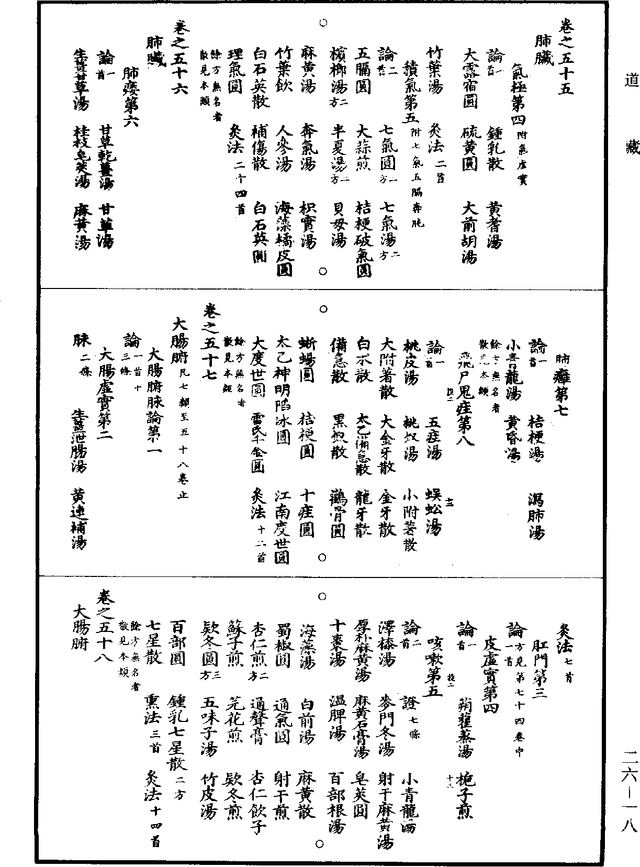 道藏
卷之五十五
肺臟
氣極第四附氣虛實
論一首 鍾乳散 黃耆湯
大露宿圓 硫黃圓 大前胡湯
竹葉湯 灸法二首
積氣第五附七氣五膈奔豚
論二首 七氣圓方一 七氣湯方二
五膈圓 大蒜煎 桔梗破氣圓
檳榔湯方二 半夏湯方一 貝母湯
麻黃湯 奔氣湯 枳實湯
竹葉飲 人參湯 海藻橘皮圓
白石英散 補傷散 白石英圓
理氣圓 灸法二十四首
餘方無名者散見本類
卷之五十六
肺臟
肺痿第六
論一首 甘草乾薑湯 甘草湯
生薑甘草湯 桂枝皂莢湯 麻黃湯
肺癰第七
論一首 桔梗湯 瀉肺湯
小青龍湯 黃昏湯
餘方無名者散見本類
飛尸鬼疰第八
論一首 五疰湯 蜈蚣湯
桃皮湯 桃奴湯 小附著散
大附著散 大金牙散 金牙散
白朮散 太乙備急散 龍牙散
備急散 黑奴散 鸛骨圓
蜥蜴圓 桔梗圓 十疰圓
太乙神明陷冰圓 江南度世圓
大度世圓 雷氏千金圓 灸法十二首
餘方無名者散見本類
卷之五十七
大腸腑凡七類至五十八卷止
大腸腑脉論第一
論一首十三條
大腸虛實第二
脉二條 生薑泄腸湯 黃連補湯
灸法七首
肛門第三
論一首方見第七十四卷中
皮虛實第四
論一首 蒴藋蒸湯 梔子煎
咳嗽第五
論二首 證七條 小青龍湯
澤漆湯 麥門冬湯 射干麻黃湯
厚朴麻黃湯 麻黃石膏湯 皂莢圓
十棗湯 溫脾湯 百部根湯
海藻湯 白前湯 麻黃散
蜀椒圓 通氣圓 射干煎
杏仁煎方二 通聲膏 杏仁飲子
蘇子煎 芫花煎 欵冬煎
欵冬圓方三 五味子湯 竹皮湯
百部圓 鍾乳七星散二方
七星散 熏法三首 灸法十四首
餘方無名者散見本類
卷之五十八
大腸腑
二六—一八